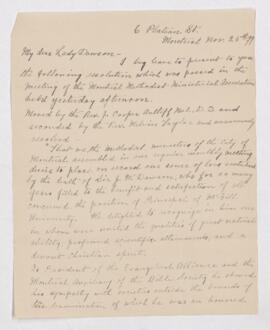 6 Plateau St.
Montreal Nov. 25th '99
My dear Lady Dawson -
I beg leave to present to you
the following resolution which was passed in the
meeting of the Montreal Methodist Ministerial Association
held yesterday afternoon.
Moved by the Rev. J. Cooper Antliff M.A., D.D. and
seconded by the Rev. Melvin Taylor and unanimously
resolved -
That we, the Methodist ministers of the City of
Montreal assembled in our regular monthly meeting
desire to place on record our sense of loss sustained
by the death of Sir J. W. Dawson, who for so many
years filled to the benefit and satisfaction of all
concerned the position of Principal of McGill
University. We delighted to recognize in him one
in whom were united the qualities of great natural
ability, profound scientific attainments, and a
devout Christian spirit.
As President of the Evangelical Alliance and the
Montreal Auxiliary of the Bible Society he showed
his sympathy with societies outside the bounds of
the denomination of which he was an honored